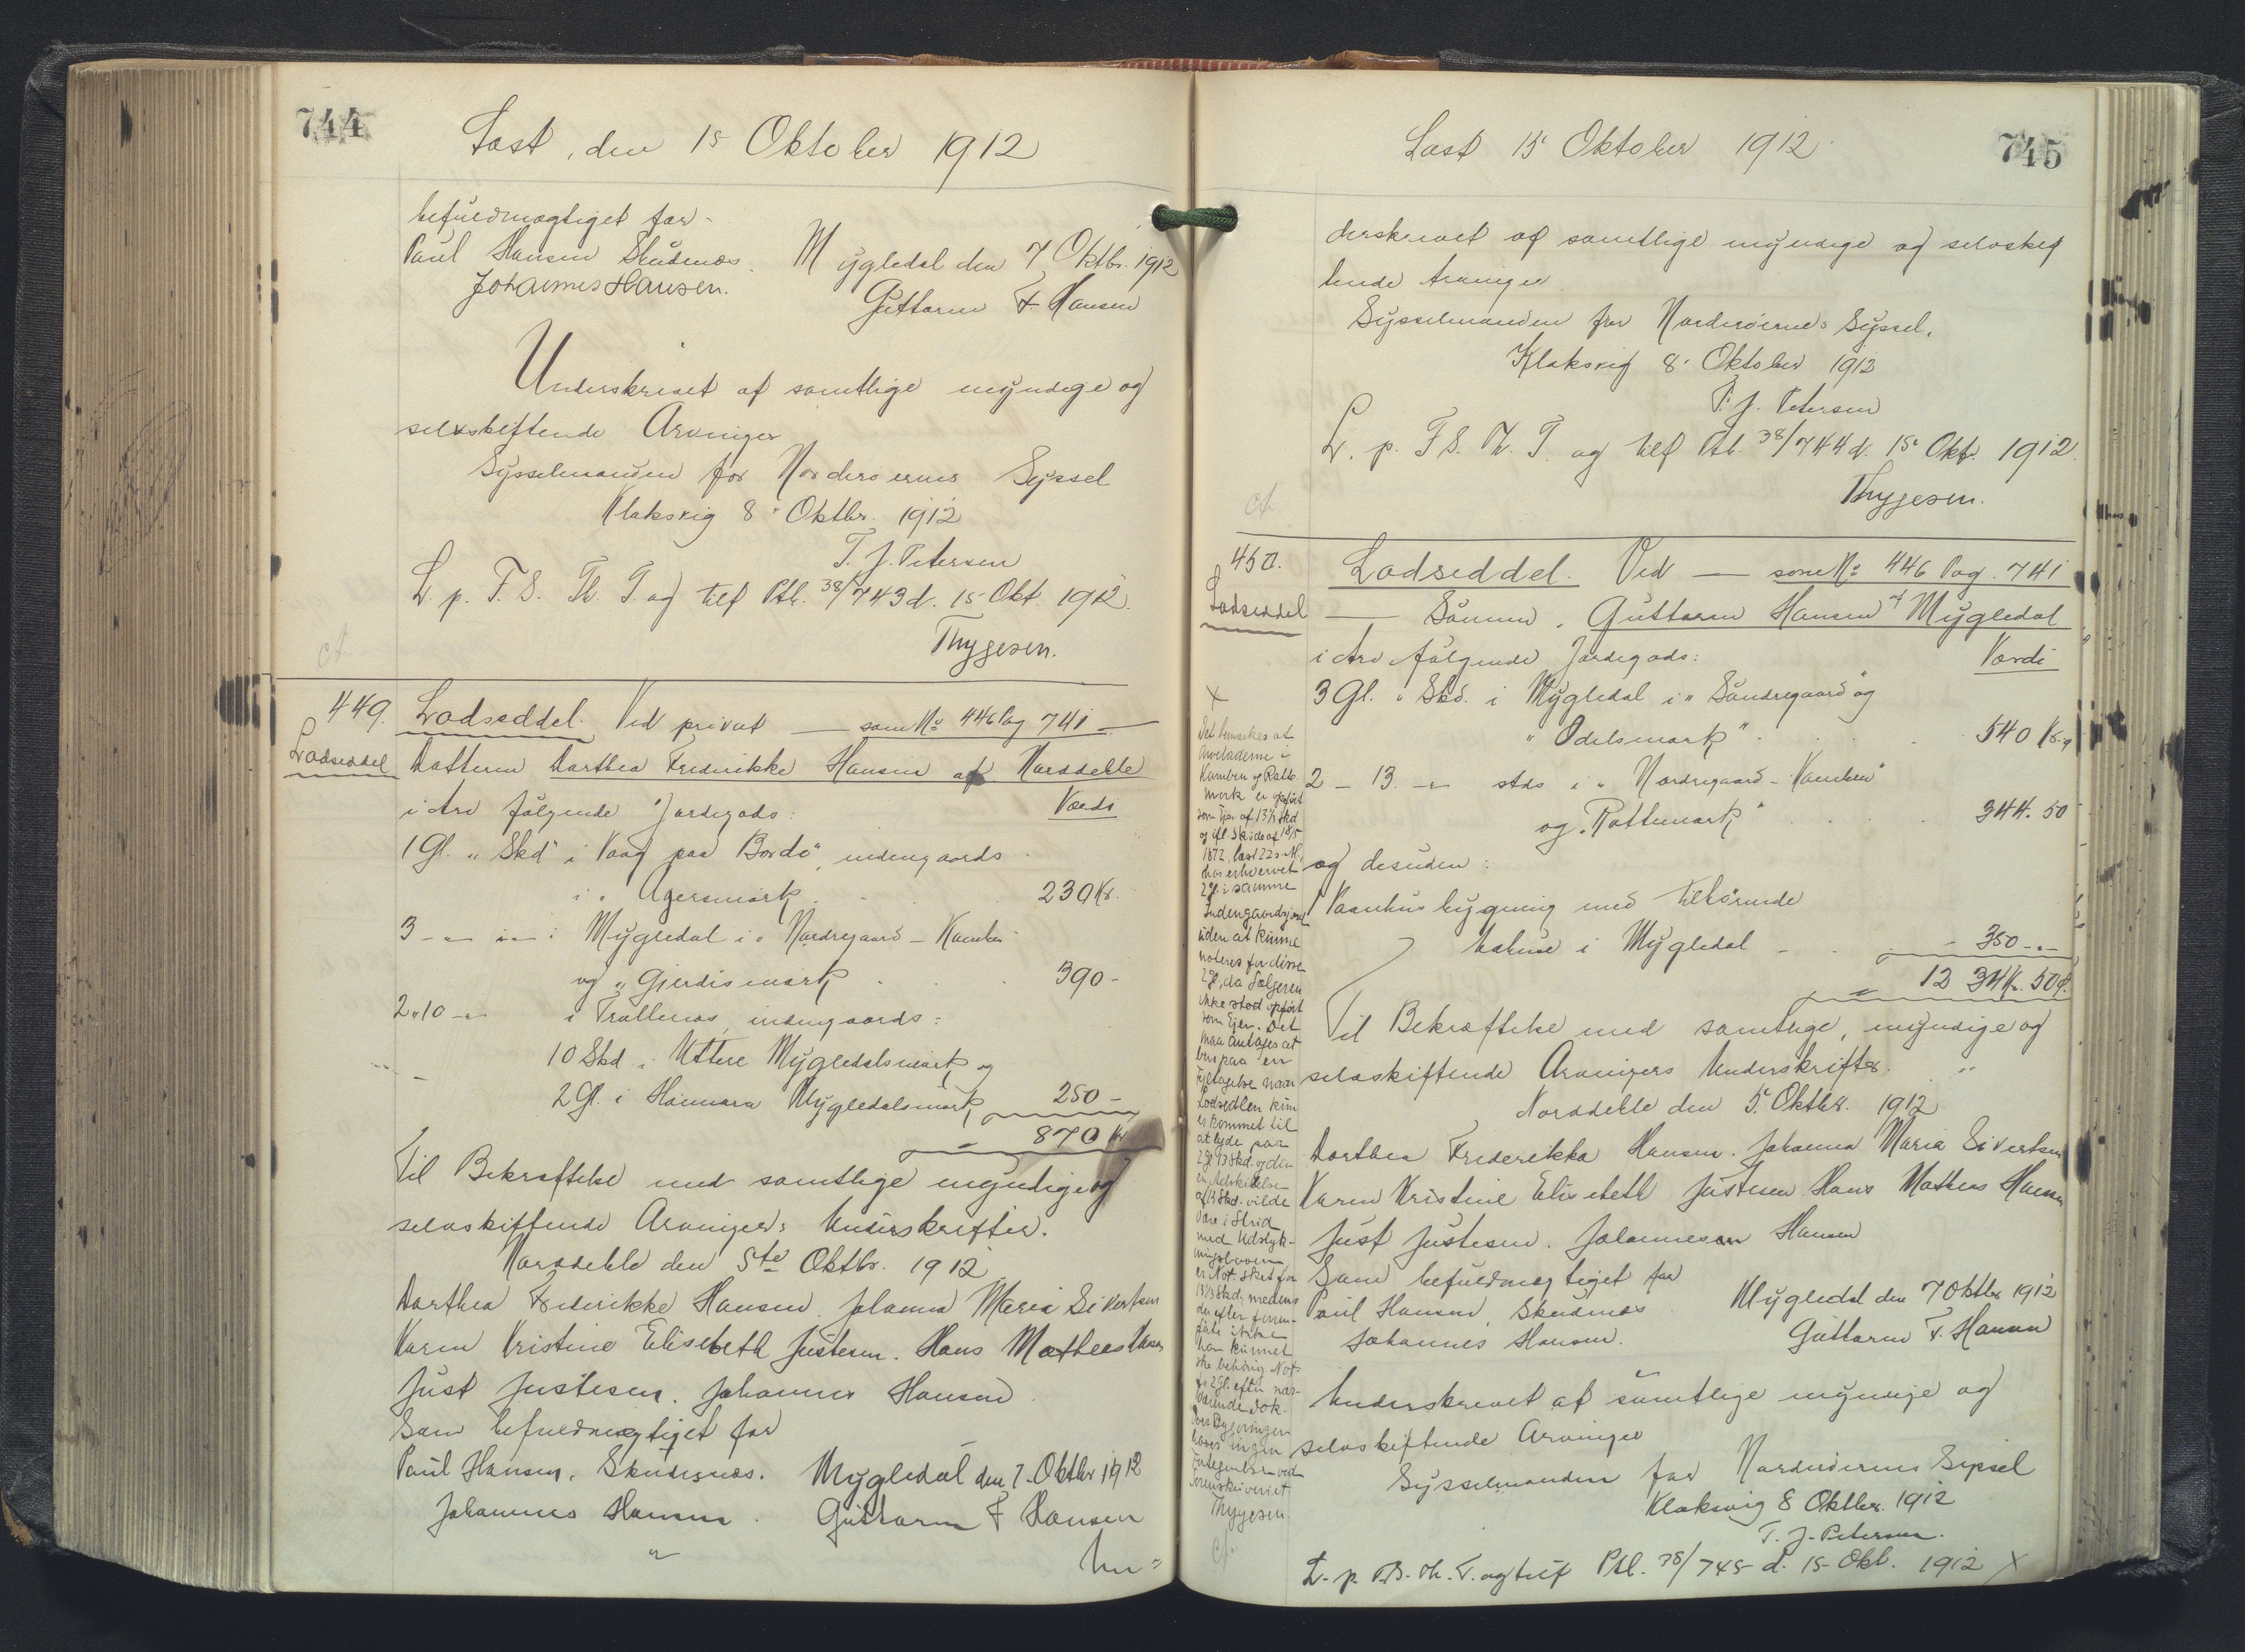 744
Læst, den 15 Oktober 1912
befuldmægtiget for
Paul Hansen Skudenæs. Mygledal den 7 Oktbr. 1912
Johannes Hansen. Guttorm F. Hansen
Underskrevet af samtlige myndige og
selvskiftende Arvinger
Sysselmanden for Norderøernes Syssel
Klaksvig 8 Oktbr. 1912
T. J. Petersen
L. p. F. S. Th. T. og tilf Ptl. 38/743 d. 15 Okt. 1912.
Thygesen.
449. Lodseddel. Ved privat — som No 446 Pag 741 —
Lodseddel Datteren Dorthea Frederikke Hansen af Norddeble
i Arv følgende Jordegods: Værdi
1 Gl. " Skd" i Vaag paa Bordø", indengaards
i " Agersmark 230 Kr.
3 - " - " - i Mygledal i " Nordregaard - Kamben
og " Gjerdismark 390 -
2 " 10 - " i Trøllenæs indengaards:
10 Skd i Uttere Mygledalsmark og
2 Gl. i Hammara Mygledalsmark 250 -
870 Kr
Til Bekræftelse med samtlige myndige og
selvskiftende Arvingers Underskrifter.
Norddeble den 5te Oktbr. 1912
Dorthea Frederikke Hansen. Johanna Maria Sivertsen
Karen Kristine Elisebeth Justesen. Hans Mathias Hansen
Just Justesen. Johannes Hansen
Som befuldmægtiget for
Paul Hansen, Skudenæs. Mygledal den 7. Oktbr 1912
Johannes Hansen. Guttorm F Hansen
Un=
745
Læst 15 Oktober 1912
derskrevet af samtlige myndige og selvskif
tende Arvinger
Sysselmanden for Norderøernes Syssel.
Klaksvig 8 Oktober 1912
T. J. Petersen
L. p. F. S. Th. T. og tilf Ptl. 38/744 d. 15 Okt. 1912.
Thygesen.
450. Lodseddel. Ved — som No 446 Pag. 741
Lodseddel — Sønnen, Guttorm Hansen af Mygledal
i Arv følgende Jordegods: Værdi
3 Gl. " Skd. i Mygledal i " Sundregaard" og
" Odelsmark" 540 Kr. "
2 - 13 - " - stds i " Nordregaard - Kamben"
og " Rattemark" 344. 50
og desuden:
1 Vaanhusbygning med tilhørende
i Mygledal 350 - " -
1234 Kr. 50 Ø.
Til Bekræftelse med samtlige, myndige og
selvskiftende Arvingers Underskrifter.
Norddeble den 5. Oktbr. 1912
Dorthea Frederikka Hansen. Johanna Maria Sivertsen
Karen Kristine Elisebeth Justesen. Hans Mathias Hansen
Just Justesen. Johannes Hansen
Som befuldmægtiget for
Paul Hansen, Skudenæs Mygledal den 7 Oktbr 1912
Johannes Hansen. Guttorm F. Hansen
Underskrevet af samtlige myndige og
selvskiftende Arvinger
Sysselmanden for Norderøernes Syssel
Klaksvig 8 Oktbr. 1912
T. J. Petersen.
L. p. F. S. Th. T. og tilf Ptl. 38/745 d. 15 Okt. 1912 X
X
Det bemærkes at
Arveladerne i
Kamben og Ratte-
mark er opført
som Ejer af 13 1/3 Skd
og ifl. Skøde af 18/5
1872, læst 22 s. M.,
har erhvervet
2 Gl. i samme
Indengaardsjord
uden at kunne
noteres for disse
2 Gl, da Sælgeren
ikke stod opført
som Ejer. Det
maa antages at
bero paa en
Fejltagelse naar
Lodsedlen kun
er kommet til
at lyde paa
2 Gl 13 Skd. og da
en Adskillelse
af 1/3 Skd. vilde
være i Strid
med Udstyk-
ningsloven
er Not. sket for
13 1/3 Skd, medens
der efter
ikke
har kunnet
ske behørig Not.
for 2 Gl. efter nær-
værende Dok.
Over Bygningen
haves ingen
ved
Sorenskriveriet
Thygesen.